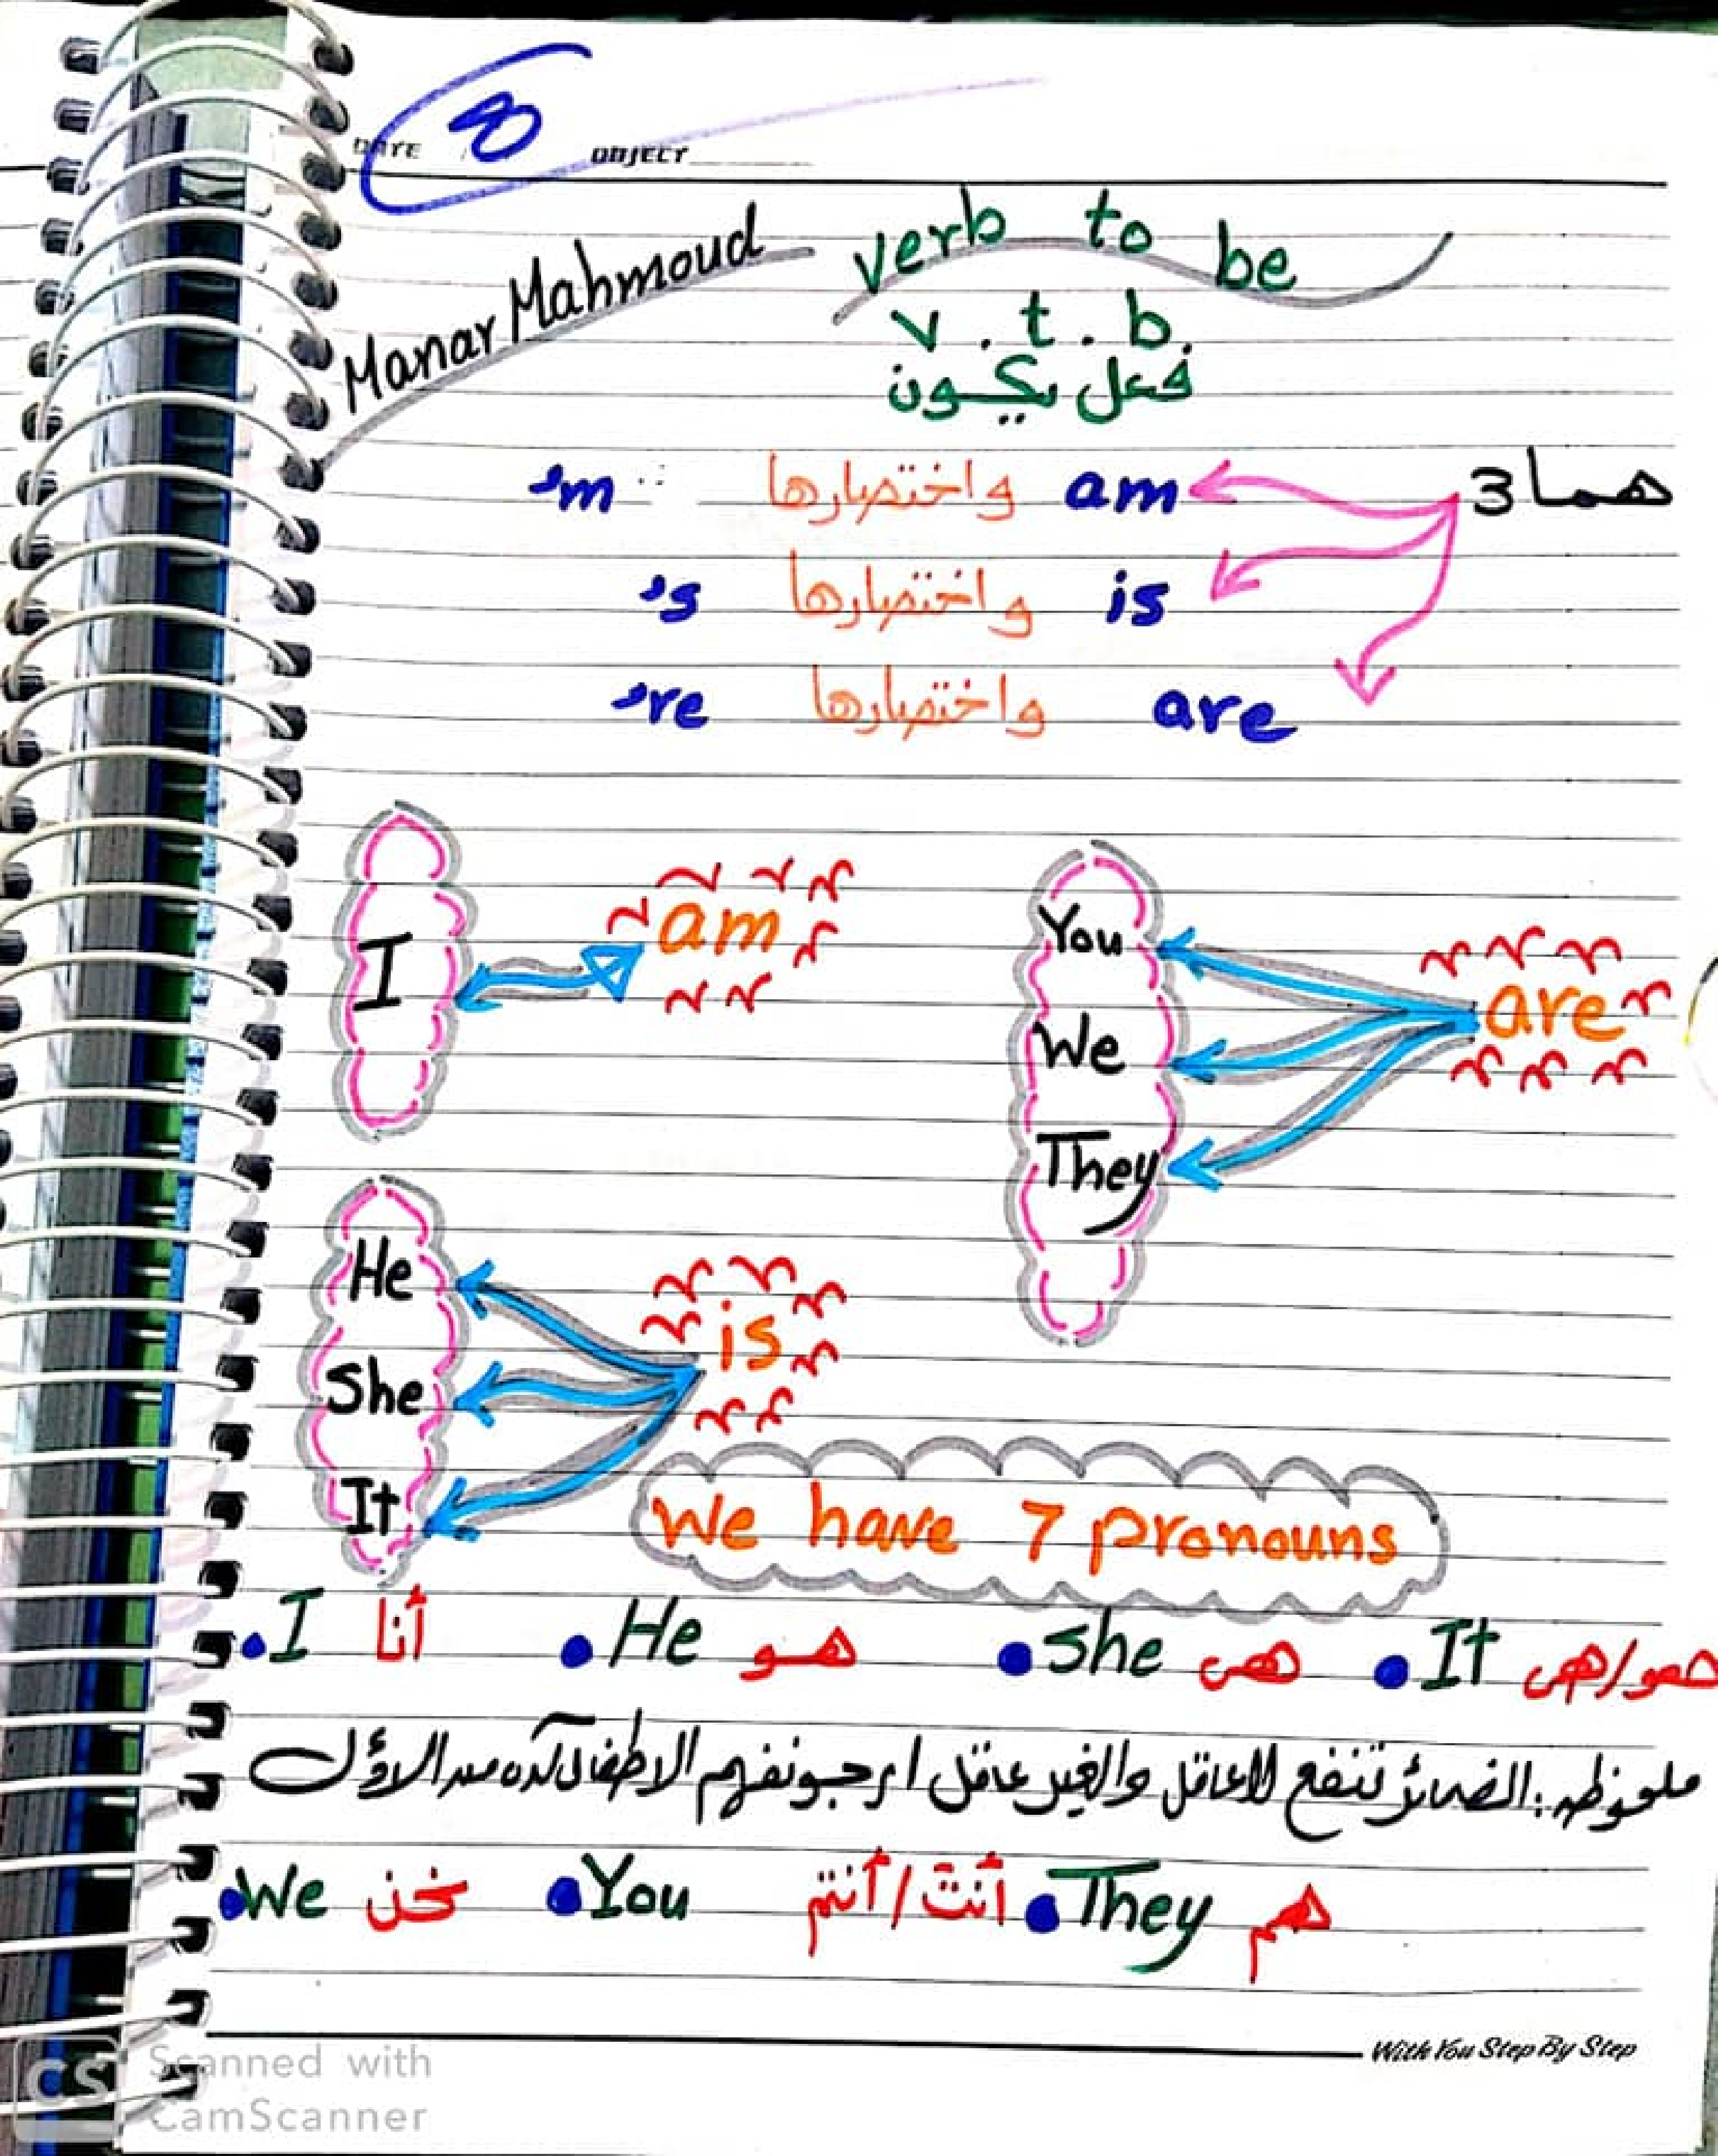 DATE 8 OBJECT
Manar Mahmoud
verb to be
v . t . b.
فعل يكون
هما 3
am واختصارها 'm
is واختصارها 's
are واختصارها 're
I
am
You
We
They
are
He
She
It
is
We have 7 pronouns
I أنا He هو She هى It هو/هى
ملحوظه: الضمائر تنفع للعاقل والغير عاقل ارجو نفهم الاطفال كده من الاول
We نحن You أنت/أنتم They هم
With You Step By Step
CS Scanned with
CamScanner